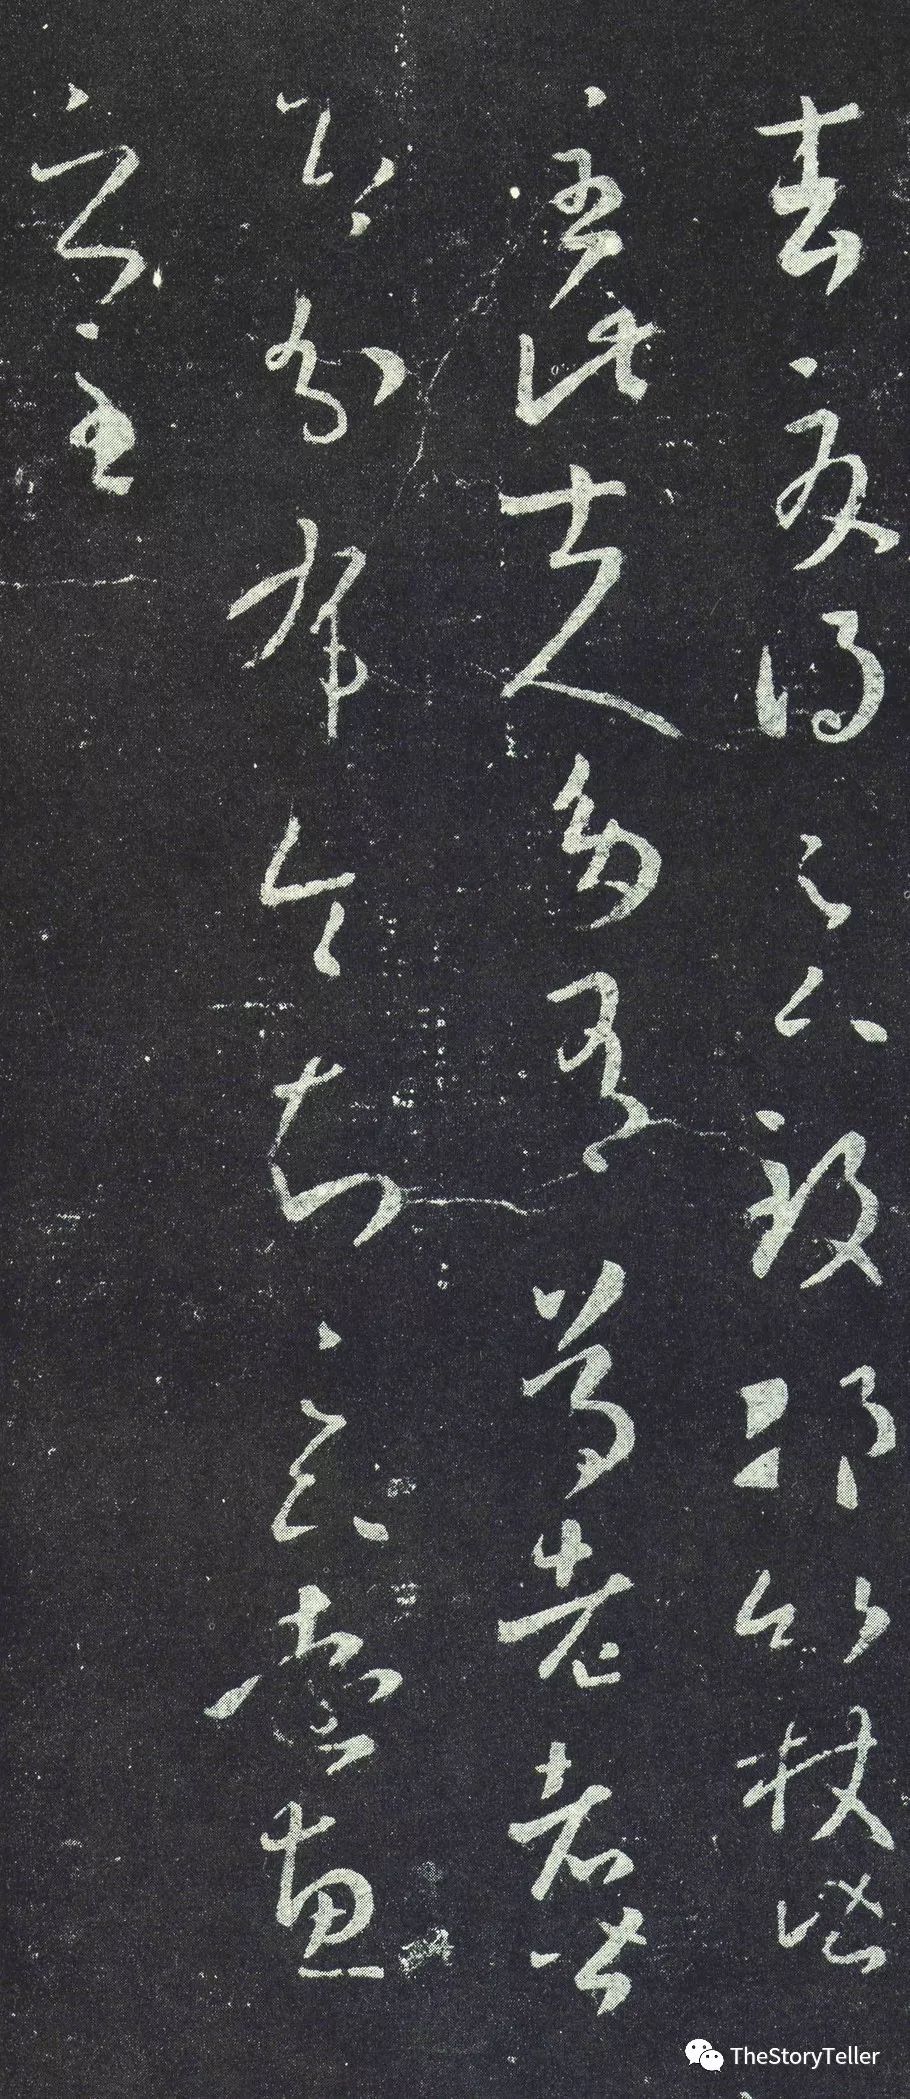 去夏得足下致邛竹杖皆
至此士人多有尊老者皆
即分布令知足下遠惠
之至
TheStoryTeller